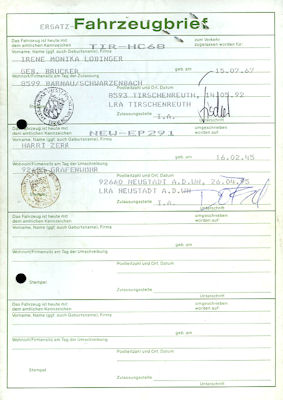 ERSATZ- Fahrzeugbrief
Das Fahrzeug ist heute mit dem amtlichen Kennzeichen TIR-HC68 zum Verkehr zugelassen worden für:
Vorname, Name (ggf. auch Geburtsname), Firma
IRENE MONIKA
GEB. BRUCKER geb. am 15.07.67
Wohnort/Firmensitz am Tag der Zulassung Postleitzahl und Ort, Datum
8593 TIRSCHENREUTH, 92
LRA TIRSCHENREUTH
Zulassungsstelle I.A.
Unterschrift
Das Fahrzeug ist heute mit dem amtlichen Kennzeichen NEW-EP291 umgeschrieben worden auf:
Vorname, Name (ggf. auch Geburtsname), Firma
HARRI ZERR geb. am 16.02.45
Wohnort/Firmensitz am Tag der Umschreibung Postleitzahl und Ort, Datum
GRAFENWÖHR 92660 NEUSTADT A.D.WN, 26.04.
LRA NEUSTADT A.D.WN
Stempel Zulassungsstelle I.A.
Unterschrift
Das Fahrzeug ist heute mit dem amtlichen Kennzeichen umgeschrieben worden auf:
Vorname, Name (ggf. auch Geburtsname), Firma
geb. am
Wohnort/Firmensitz am Tag der Umschreibung
Postleitzahl und Ort, Datum
Stempel Zulassungsstelle
Unterschrift
Das Fahrzeug ist heute mit dem amtlichen Kennzeichen umgeschrieben worden auf:
Vorname, Name (ggf. auch Geburtsname), Firma
geb. am
Wohnort/Firmensitz am Tag der Umschreibung
Postleitzahl und Ort, Datum
Zulassungsstelle
Stempel
Unterschrift